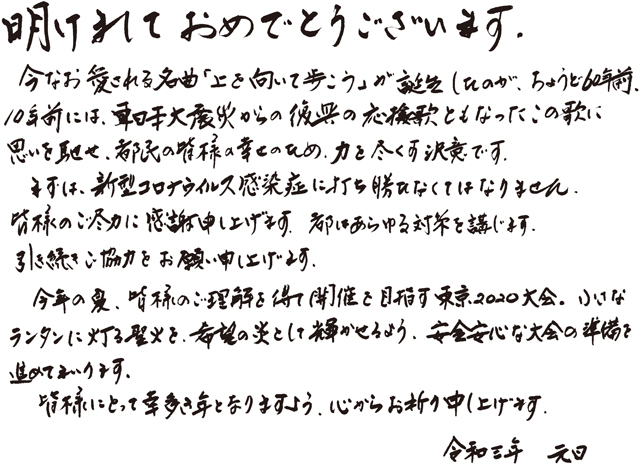 明けましておめでとうございます。
今なお愛される名曲「上を向いて歩こう」が誕生したのが、ちょうど60年前、
10年前には、東日本大震災からの復興の応援歌ともなったこの歌に
思いを馳せ、都民の皆様の幸せのため、力を尽くす決意です。
まずは、新型コロナウイルス感染症に打ち勝たなくてはなりません。
皆様のご尽力に感謝申し上げます。都はあらゆる対策を講じます。
引き続きご協力をお願い申し上げます。
今年の夏、皆様のご理解を得て開催を目指す東京2020大会。小さな
ランタンに灯る聖火を、希望の炎として輝かせるよう、安全安心な大会の準備を
進めてまいります。
皆様にとって幸多き年となりますよう、心からお祈り申し上げます。
令和三年 元日